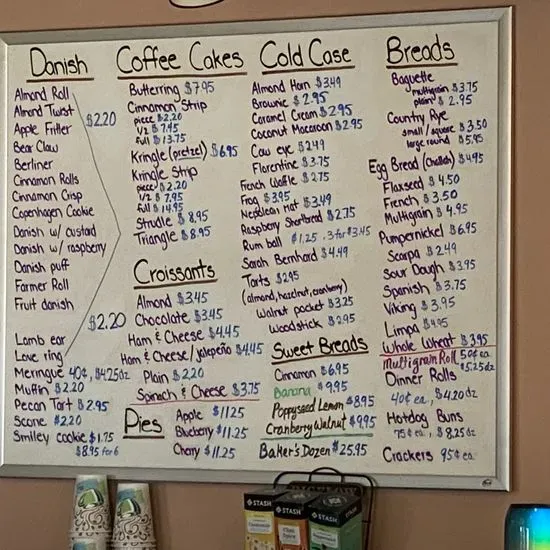 Danish
Almond Roll
Almond Twist
Apple Fritter
Bear Claw
Berliner
Cinnamon Rolls
Cinnamon Crisp
Copenhagen Cookie
Danish w/ custard
Danish w/ raspberry
Danish puff
Farmer Roll
Fruit danish
$2.20
Lamb ear
Love ring
$2.20
Meringue 40¢, $4.25dz
Muffin $2.20
Pecan Tart $2.95
Scone $2.20
Smiley cookie $1.75
$8.95 for 6
Coffee Cakes
Butterring $7.95
Cinnamon Strip
piece $2.20
1/2 $7.45
full $13.75
Kringle (pretzel) $6.95
Kringle Strip
piece $2.20
1/2 $7.95
full $14.95
Strudle $8.95
Triangle $8.95
Croissants
Almond $3.45
Chocolate $3.45
Ham & Cheese $4.45
Ham & Cheese/jalepeño $4.45
Plain $2.20
Spinach & Cheese $3.75
Pies
Apple $11.25
Blueberry $11.25
Cherry $11.25
Cold Case
Almond Horn $3.49
Brownie $2.95
Caramel Cream $2.95
Coconut Macaroon $2.95
Cow eye $2.49
Florentine $3.75
French Waffle $2.75
Frog $3.95
Nepolean Hat $3.49
Raspberry Shortbread $2.75
Rum ball $1.25, 3 for $3.45
Sarah Bernhard $4.49
Tarts $2.95
(almond, hazelnut, cranberry)
Walnut pocket $3.25
Woodstick $2.95
Sweet Breads
Cinnamon $6.95
Banana $9.95
Poppyseed Lemon $8.95
Cranberry Walnut $9.95
Baker's Dozen $25.95
Breads
Baguette
multigrain $3.75
plain $2.95
Country Rye
small/square $3.50
large round $5.95
Egg Bread (Challah) $4.95
Flaxseed $4.50
French $3.50
Multigrain $4.95
Pumpernickel $6.95
Scarpa $2.49
Sour Dough $3.95
Spanish $3.75
Viking $3.95
Limpa $4.95
Whole Wheat $3.95
Multigrain Roll 50¢ ea
$5.25dz
Dinner Rolls
40¢ ea, $4.20dz
Hotdog Buns
75¢ ea, $8.25dz
Crackers 95¢ ea
STASH
STASH
STASH